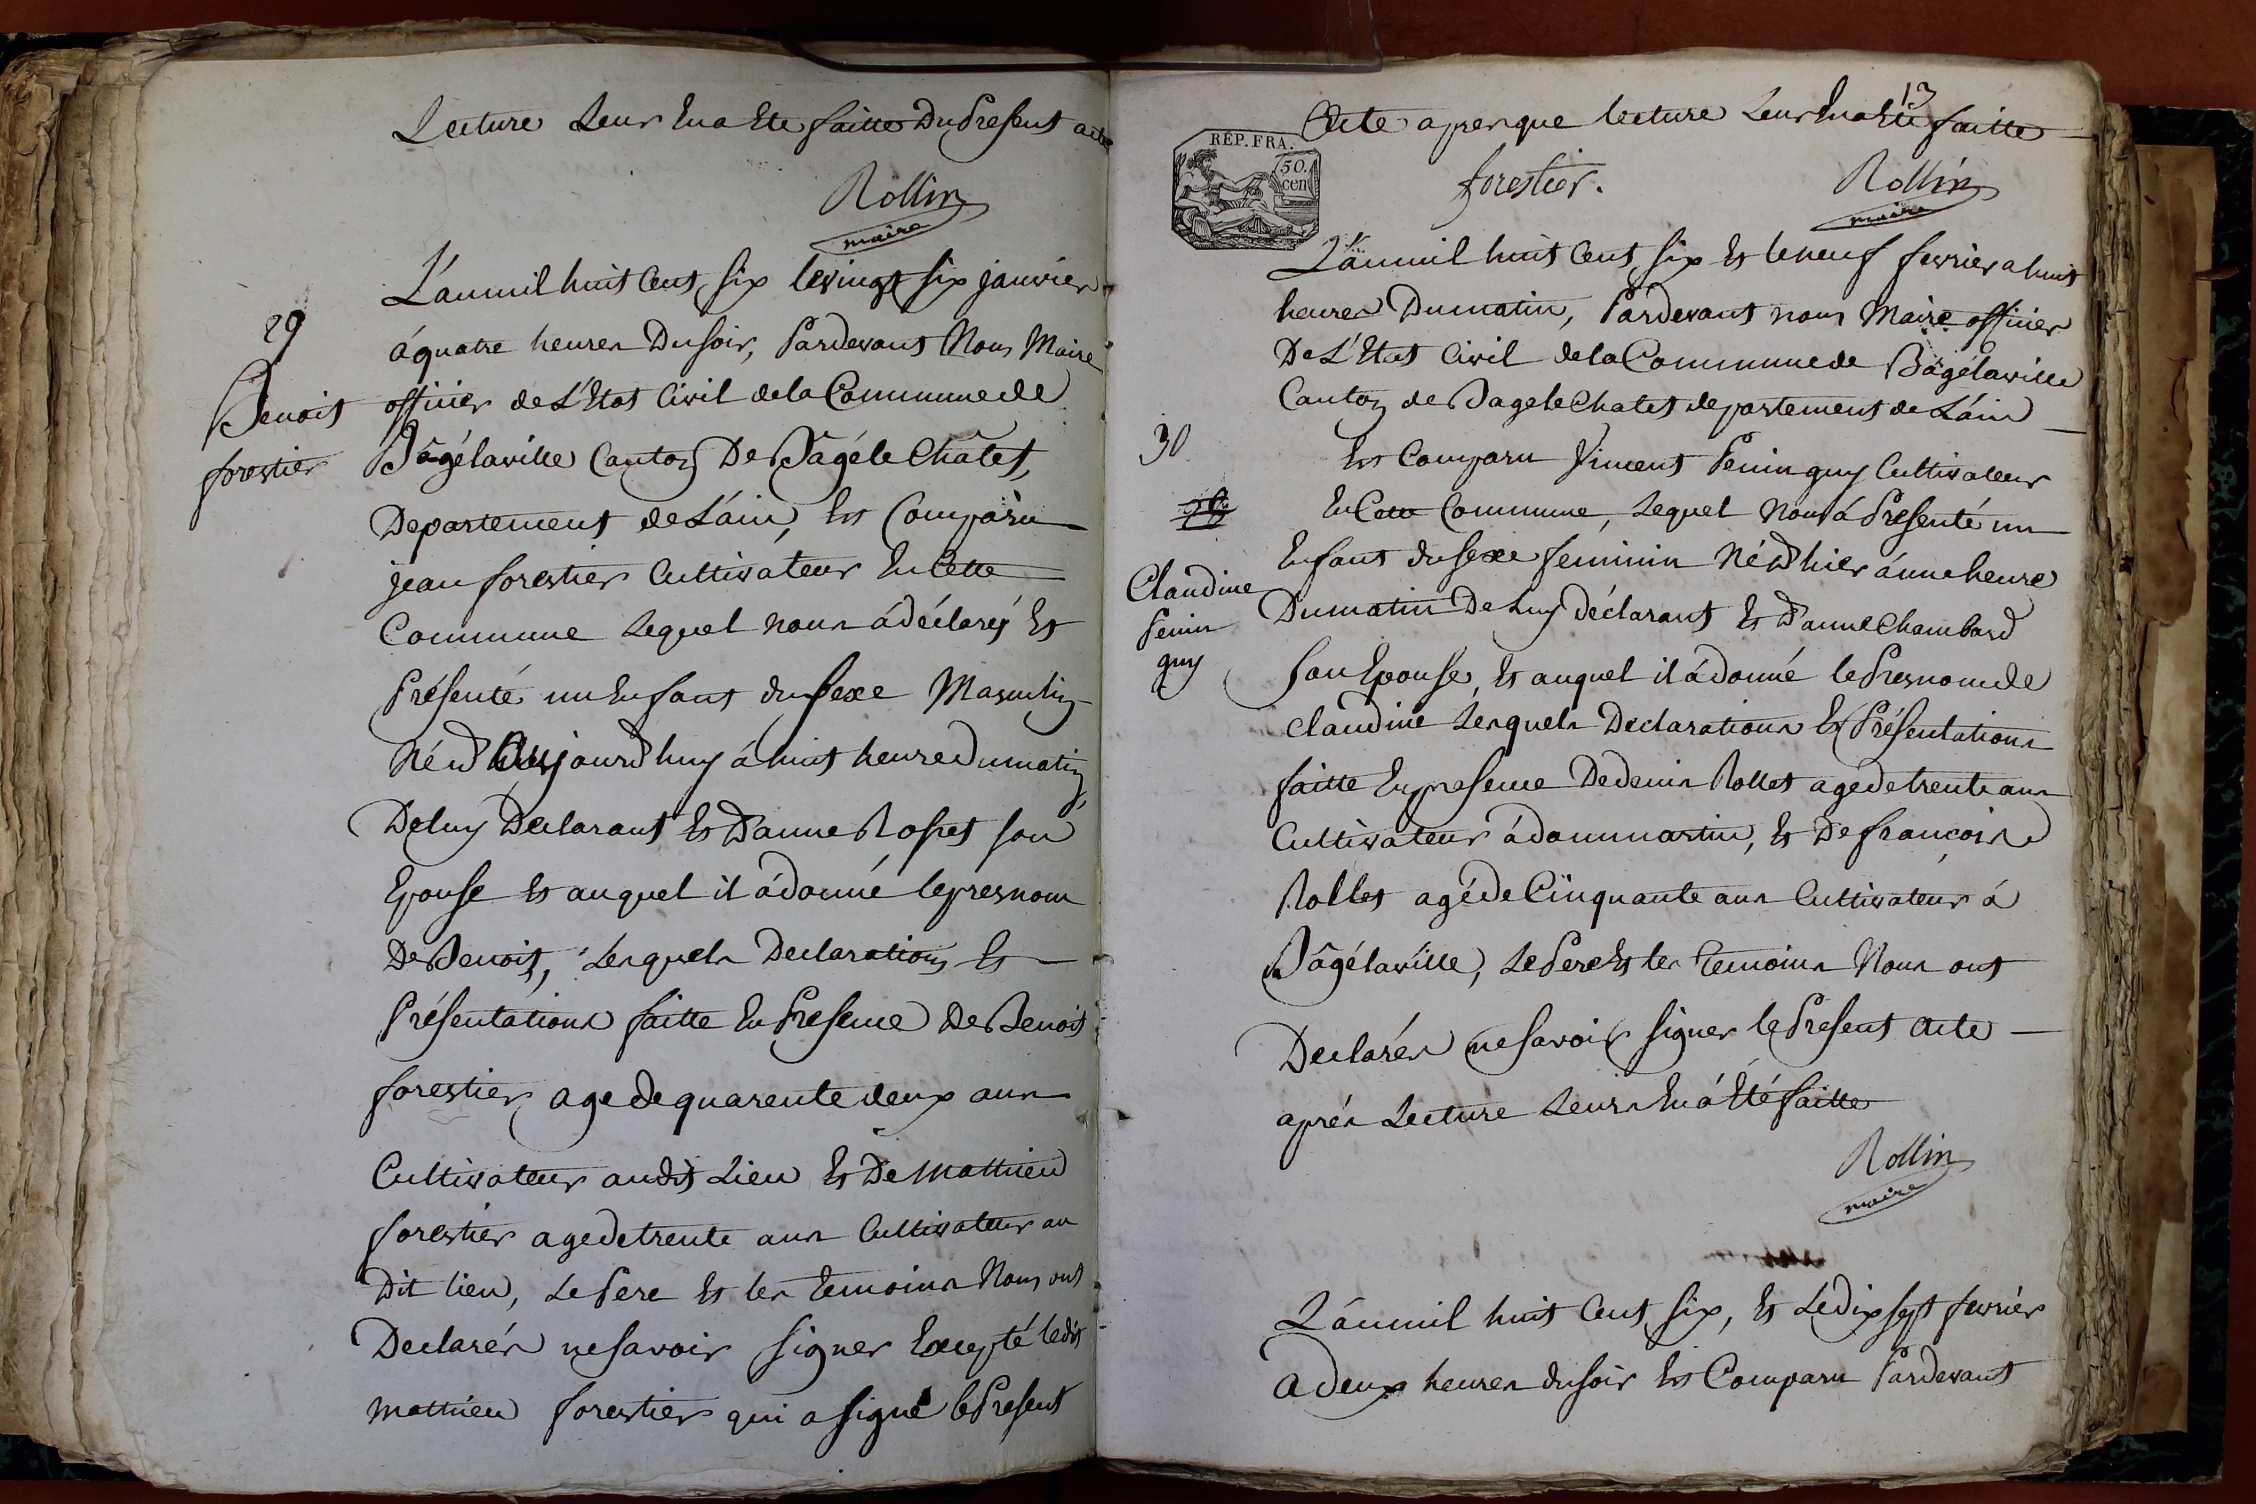 Lecture Leur En a Ete faitte Du Present acte
Rollin
maire
29
Benoit
forestier
L'an mil huit Cent Six le vingt Six janvier
á quatre heures Du soir, Pardevant Nous Maire
officier de L'Etat Civil de la Commune de
Bâgélaville Canton De Bâgé le Châtet,
Departement de L'ain, Est Comparu
jean forestier Cultivateur En Cette
Commune Lequel nous á déclaré Et
Présenté un Enfant du sexe Masculin
Né d'Aujourd huy á huit heure du matin,
De luy Declarant Et D'anne Roset son
Epouse Et auquel il á donné le presnom
De Benoit, Lesquels Declarations Et
Présentations faitte En Presence De Benoit
forestier age de quarente deux ans
Cultivateur au dit Lieu Et De Mathieu
forestier age de trente ans Cultivateur au
Dit lieu, Le Pere Et les temoins Nous ont
Declarés ne savoir signer Excepté ledit
mathieu forestier qui a signé le Present
13
Acte apres que lecture Leur En a Eté faitte
RÉP. FRA.
50.
cen
forestier.
Rollin
maire
L'an mil huit Cent Six Et le neuf fevrier a huit
heures Du matin, Pardevant nous Maire officier
De L'Etat Civil de la Commune de Bâgélaville
Canton de Bage le Chatet departement de L'ain
30
Est Comparu Vincent Penin guy Cultivateur
En Cette Commune, Lequel Nous á Présenté un
Claudine
Penin
guy
Enfant du sexe feminin Né d'hier á une heure
Du matin De Luy Déclarant Et D'anne Chambard
son Epouse, Et auquel il á donné le Presnom de
Claudine Lesquels Declarations Et Présentations
faitte En presence De denis Rollet age de trente ans
Cultivateur á dommartin, Et De françois
Rollet agé de Cinquante ans Cultivateur á
Bâgélaville, Le Pere Et les temoins Nous ont
Declarés ne savoir signer le Present Acte
aprés Lecture Leurs En á Eté faitte
Rollin
maire
L'an mil huit Cent Six, Et Le dix sept fevrier
A deux heures du soir Est Comparu Pardevant